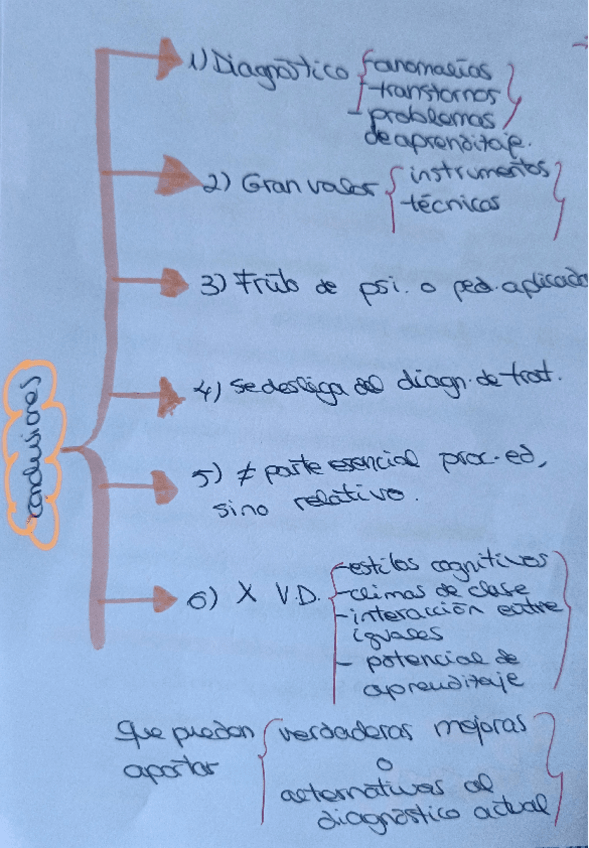 conclusiones
1) Diagnóstico { anomalías
- transtornos
- problemas
de aprendizaje.
2) Gran valor { instrumentos
- técnicas
3) Fruto de psi. o ped. aplicada
4) Se desliga del diagn. de trat.
5) ≠ parte esencial proc. ed,
sino relativo.
6) X V.D. { - estilos cognitivos
- climas de clase
- interacción entre
iguales
- potencial de
aprendizaje
Que puedan { verdaderas mejoras
aportar
o
alternativas al
diagnóstico actual